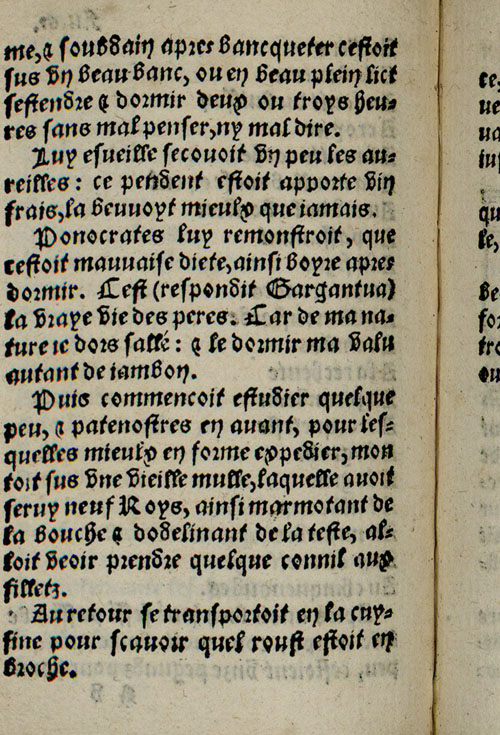 me, & soubdain apres bancqueter cestoit
sus vn beau banc, ou en beau plein lict
sestendre & dormir deux ou troys heu-
res sans mal penser, ny mal dire.
Luy esueille secouoit vn peu les au-
reilles: ce pendent estoit apporte vin
frais, la beuuoyt mieulx que iamais.
Ponocrates luy remonstroit, que
cestoit mauuaise diete, ainsi boyre apres
dormir. Cest (respondit Gargantua)
la vraye vie des peres. Car de ma na-
ture ie dors sallé: & le dormir ma valu
autant de iambon.
Puis commencoit estudier quelque
peu, & patenostres en auant, pour les-
quelles mieulx en forme expedier, mon
toit sus vne vieille mulle, laquelle auoit
seruy neuf Roys, ainsi marmotant de
la bouche & dodelinant de la teste, al-
loit veoir prendre quelque connil aux
filletz.
Au retour se transportoit en la cuy-
sine pour scauoir quel roust estoit en
broche.